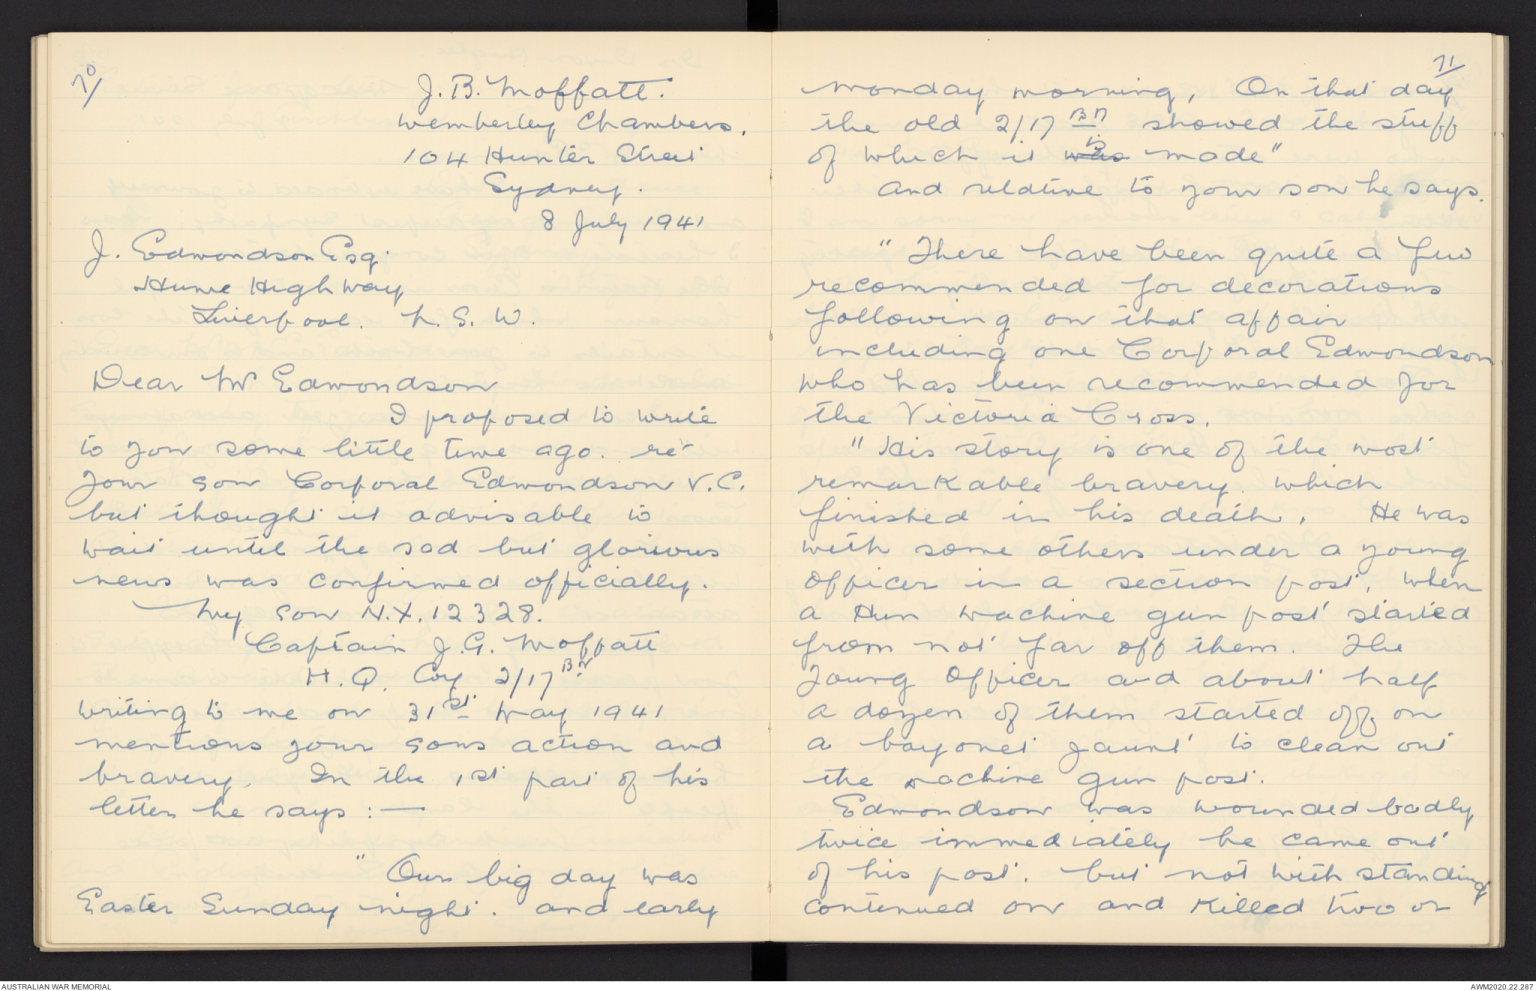 70/
J. B. Moffatt.
Wemberley Chambers.
104 Hunter Street
Sydney.
8 July 1941
J. Edmondson Esq.
Hume Highway
Liverpool. N. S. W.
Dear Mr Edmondson
I proposed to write
to you some little time ago. re
your son Corporal Edmondson V.C.
but thought it advisable to
wait until the sad but glorious
news was confirmed officially.
My son N.X. 12328.
Captain J. G. Moffatt
H. Q. Coy 2/17 Bn
writing to me on 31st May 1941
mentions your sons action and
bravery. In the 1st part of his
letter he says : —
" Our big day was
Easter Sunday night. and early
71/
monday morning, On that day
the old 2/17 Bn showed the stuff
of which it was is made"
and relative to your son he says.
" There have been quite a few
recommended for decorations
following on that affair
including one Corporal Edmondson
who has been recommended for
the Victoria Cross.
" His story is one of the most
remarkable bravery. which
finished in his death. He was
with some others under a young
officer in a section post, when
a Hun machine gun post started
from not far off them. The
young Officer and about half
a dozen of them started off on
a bayonet jaunt to clean out
the machine gun post.
Edmondson was wounded badly
twice immediately he came out
of his post. but not with standing
continued on and killed two or
AUSTRALIAN WAR MEMORIAL
AWM2020.22.287